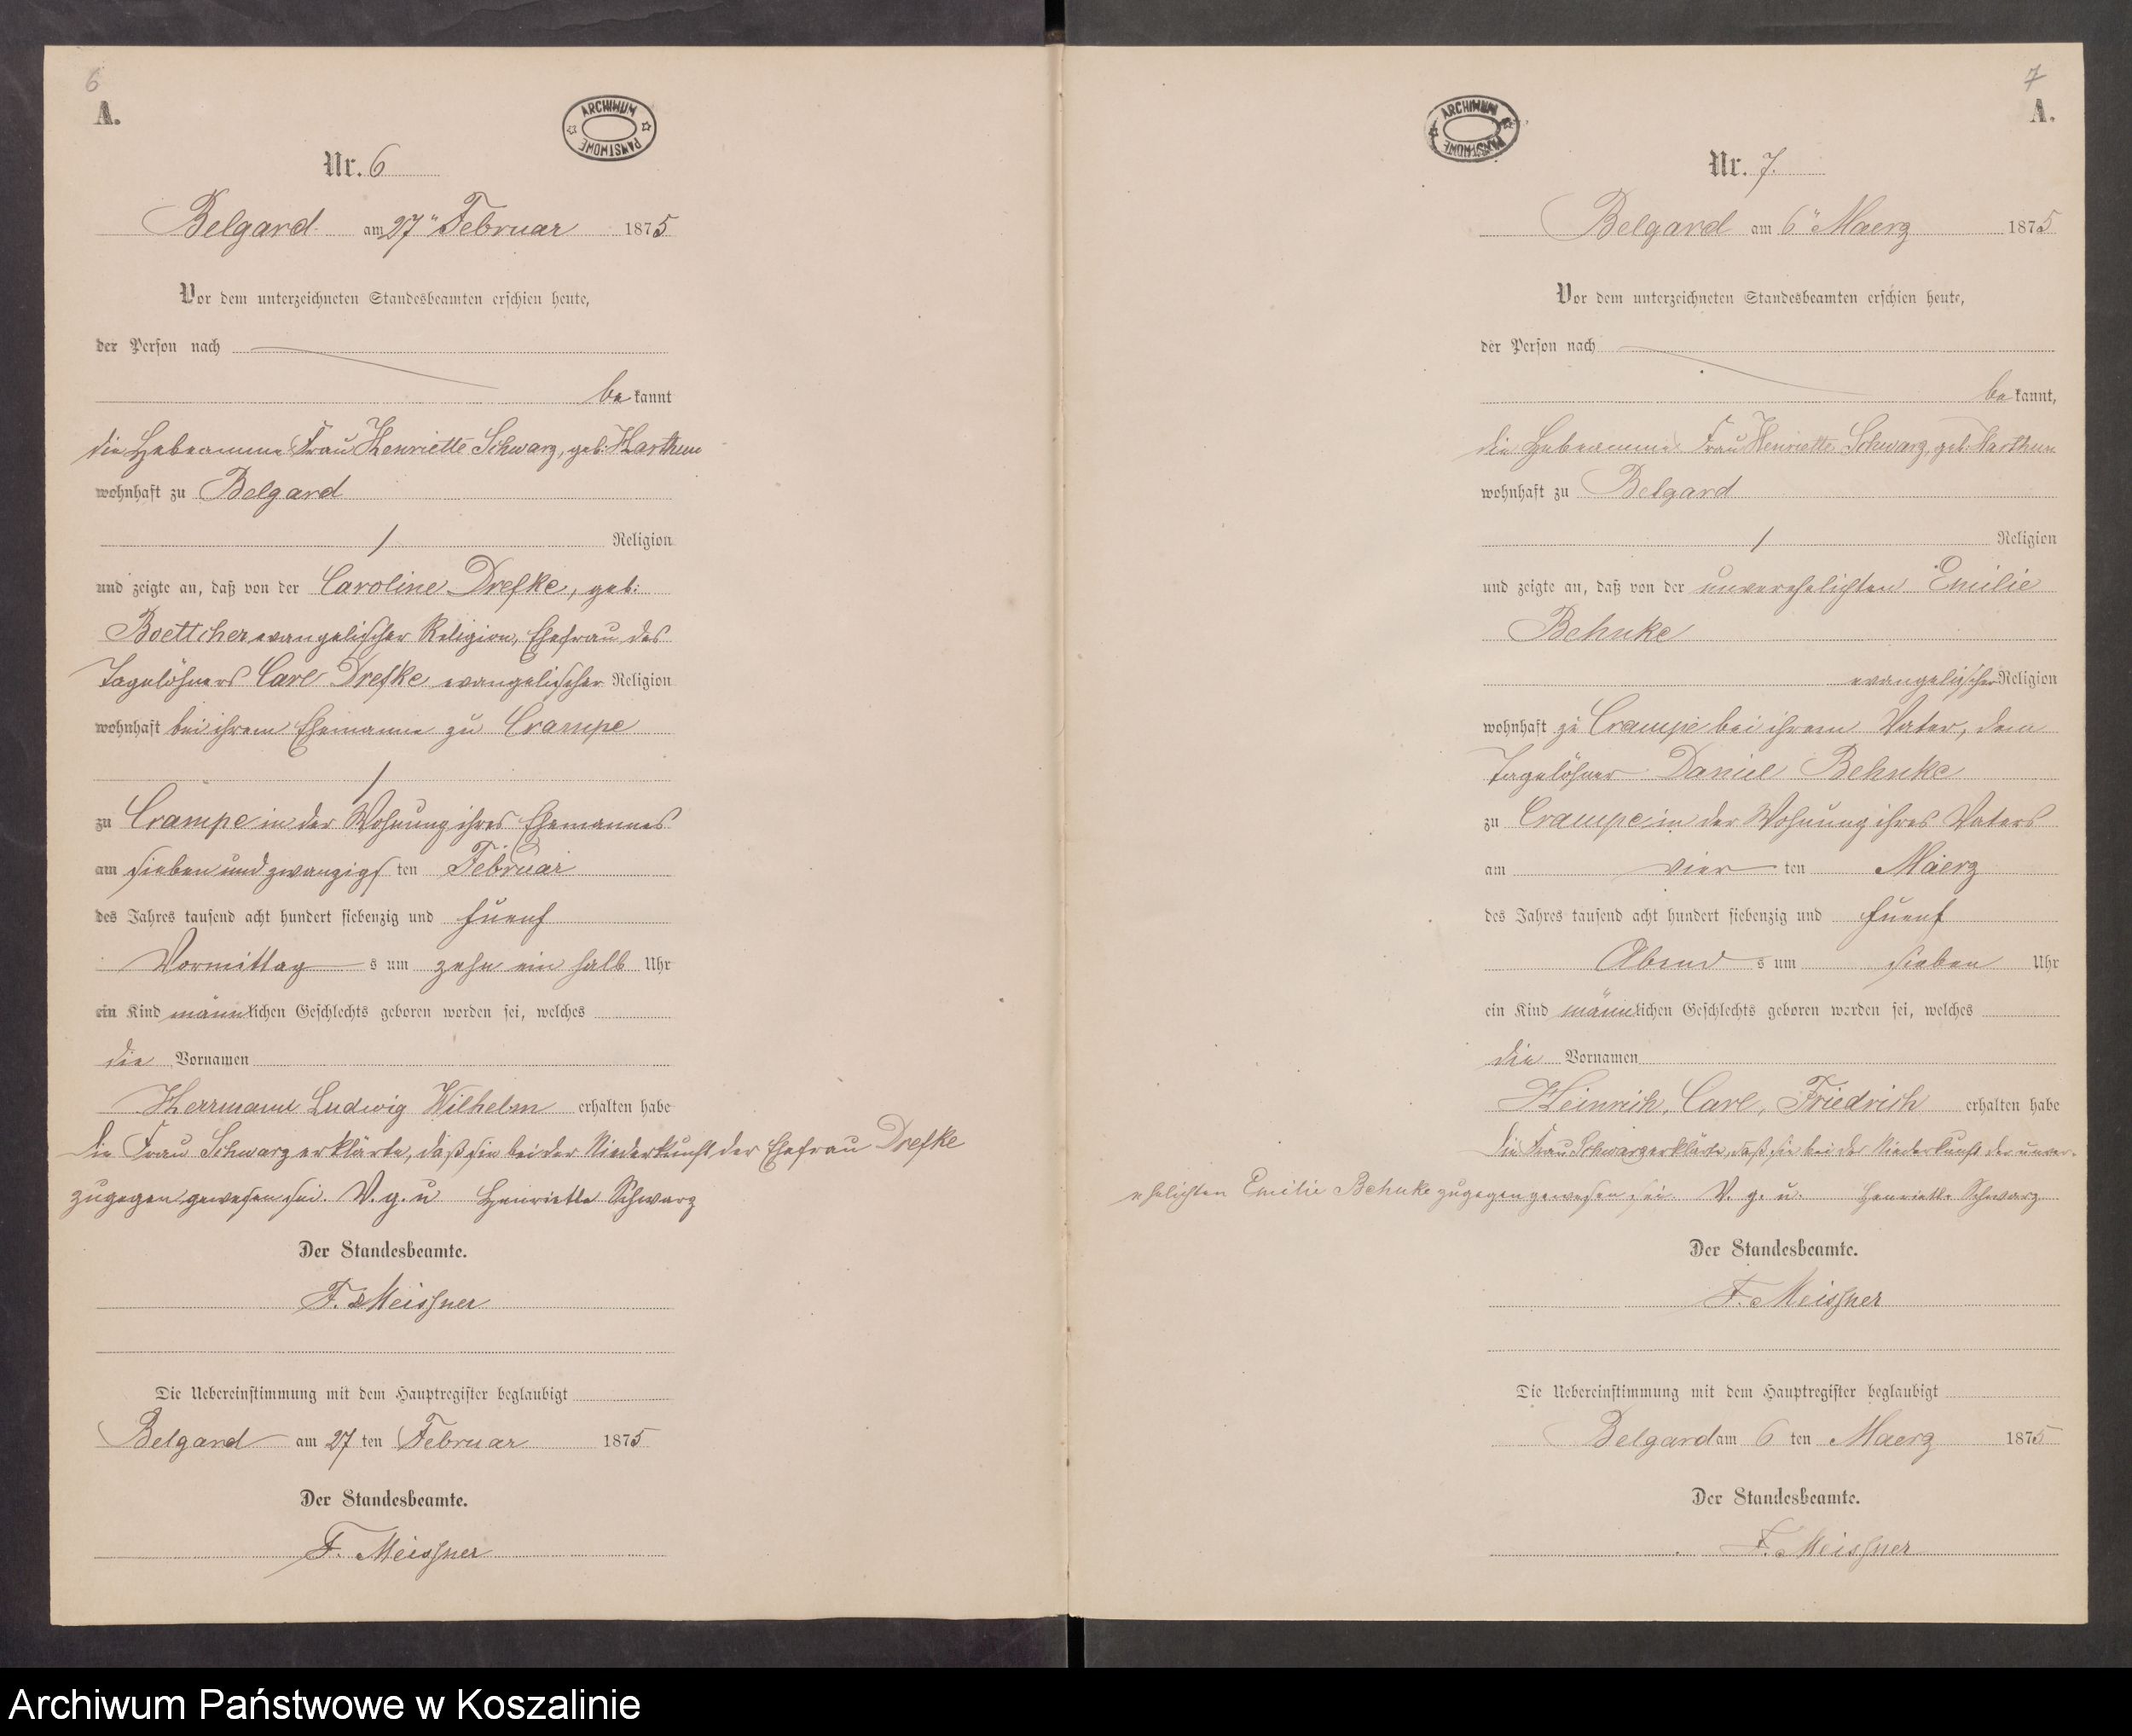 6
A.
ARCHIWUM PAŃSTWOWE
Nr. 6
Belgard am 27" Februar 1875
Vor dem unterzeichneten Standesbeamten erschien heute,
der Person nach
be kannt
die Hebeamme Frau Henriette Schwarz, geb: Harthun
wohnhaft zu Belgard
Religion
und zeigte an, daß von der Caroline Drefke, geb:
Boettcher evangelischer Religion, Ehefrau des
Tagelöhners Carl Drefke evangelischer Religion
wohnhaft bei ihrem Ehemanne zu Crampe
zu Crampe in der Wohnung ihres Ehemannes
am sieben und zwanzigs ten Februar
des Jahres tausend acht hundert siebenzig und fuenf
Vormittag s um zehn ein halb Uhr
ein Kind männlichen Geschlechts geboren worden sei, welches
die Vornamen
Herrmann Ludwig Wilhelm erhalten habe
Die Frau Schwarz erklärte, daß sie bei der Niederkunft der Ehefrau Drefke
zugegen gewesen sei. V. g. u Henriette Schwarz
Der Standesbeamte.
F. Meissner
Die Uebereinstimmung mit dem Hauptregister beglaubigt
Belgard am 27 ten Februar 1875
Der Standesbeamte.
F. Meissner
7
A.
ARCHIWUM PAŃSTWOWE
Nr. 7.
Belgard am 6" Maerz 1875
Vor dem unterzeichneten Standesbeamten erschien heute,
der Person nach
be kannt,
die Hebeamme Frau Henriette Schwarz, geb. Harthun
wohnhaft zu Belgard
Religion
und zeigte an, daß von der unverehelichten Emilie
Behnke
evangelischer Religion
wohnhaft zu Crampe bei ihrem Vater, dem
Tagelöhner Daniel Behnke
zu Crampe in der Wohnung ihres Vaters
am vier ten Maerz
des Jahres tausend acht hundert siebenzig und fuenf
Abend s um sieben Uhr
ein Kind männlichen Geschlechts geboren worden sei, welches
die Vornamen
Heinrich, Carl, Friedrich erhalten habe
Die Frau Schwarz erklärte, daß sie bei der Niederkunft der unver-
ehelichten Emilie Behnke zugegen gewesen sei. V. g. u. Henriette Schwarz
Der Standesbeamte.
F. Meissner
Die Uebereinstimmung mit dem Hauptregister beglaubigt
Belgard am 6 ten Maerz 1875
Der Standesbeamte.
F. Meissner
Archiwum Państwowe w Koszalinie